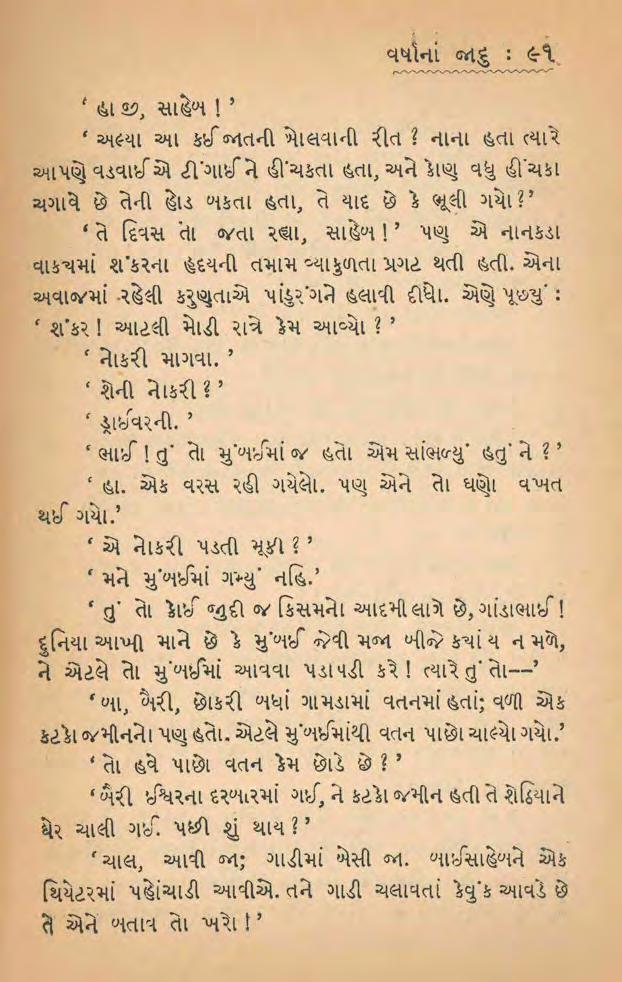 વર્ષાનાં જાદુ : ૯૧
‘ હા જી, સાહેબ ! ’
‘ અલ્યા આ કઈ જાતની બોલવાની રીત ? નાના હતા ત્યારે
આપણે વડવાઈએ ટીંગાઈને હીંચકતા હતા, અને કોણ વધુ હીંચકા
ચગાવે છે તેની હોડ બકતા હતા, તે યાદ છે કે ભૂલી ગયો ?’
‘ તે દિવસ તો જતા રહ્યા, સાહેબ ! ’ પણ એ નાનકડા
વાક્યમાં શંકરના હૃદયની તમામ વ્યાકુળતા પ્રગટ થતી હતી. એના
અવાજમાં રહેલી કરુણતાએ પાંડુરંગને હલાવી દીધો. એણે પૂછ્યું :
‘ શંકર ! આટલી મોડી રાત્રે કેમ આવ્યો ? ’
‘ નોકરી માગવા. ’
‘ શેની નોકરી ? ’
‘ ડ્રાઈવરની. ’
‘ ભાઈ ! તું તો મુંબઈમાં જ હતો એમ સાંભળ્યું હતું ને ? ’
‘ હા. એક વરસ રહી ગયેલો. પણ એને તો ઘણો વખત
થઈ ગયો.’
‘ એ નોકરી પડતી મૂકી ? ’
‘ મને મુંબઈમાં ગમ્યું નહિ.’
‘ તું તો કોઈ જુદી જ કિસમનો આદમી લાગે છે, ગાંડાભાઈ !
દુનિયા આખી માને છે કે મુંબઈ જેવી મજા બીજે ક્યાં ય ન મળે,
ને એટલે તો મુંબઈમાં આવવા પડાપડી કરે ! ત્યારે તું તો——’
‘બા, બૈરી, છોકરી બધાં ગામડામાં વતનમાં હતાં; વળી એક
કટકો જમીનનો પણ હતો. એટલે મુંબઈમાંથી વતન પાછો ચાલ્યો ગયો.’
‘ તો હવે પાછો વતન કેમ છોડે છે ? ’
‘બૈરી ઈશ્વરના દરબારમાં ગઈ, ને કટકો જમીન હતી તે શેઠિયાને
ઘેર ચાલી ગઈ. પછી શું થાય ? ’
‘ચાલ, આવી જા; ગાડીમાં બેસી જા. બાઈસાહેબને એક
થિયેટરમાં પહોંચાડી આવીએ. તને ગાડી ચલાવતાં કેવુંક આવડે છે
તે એને બતાવ તો ખરો ! ’